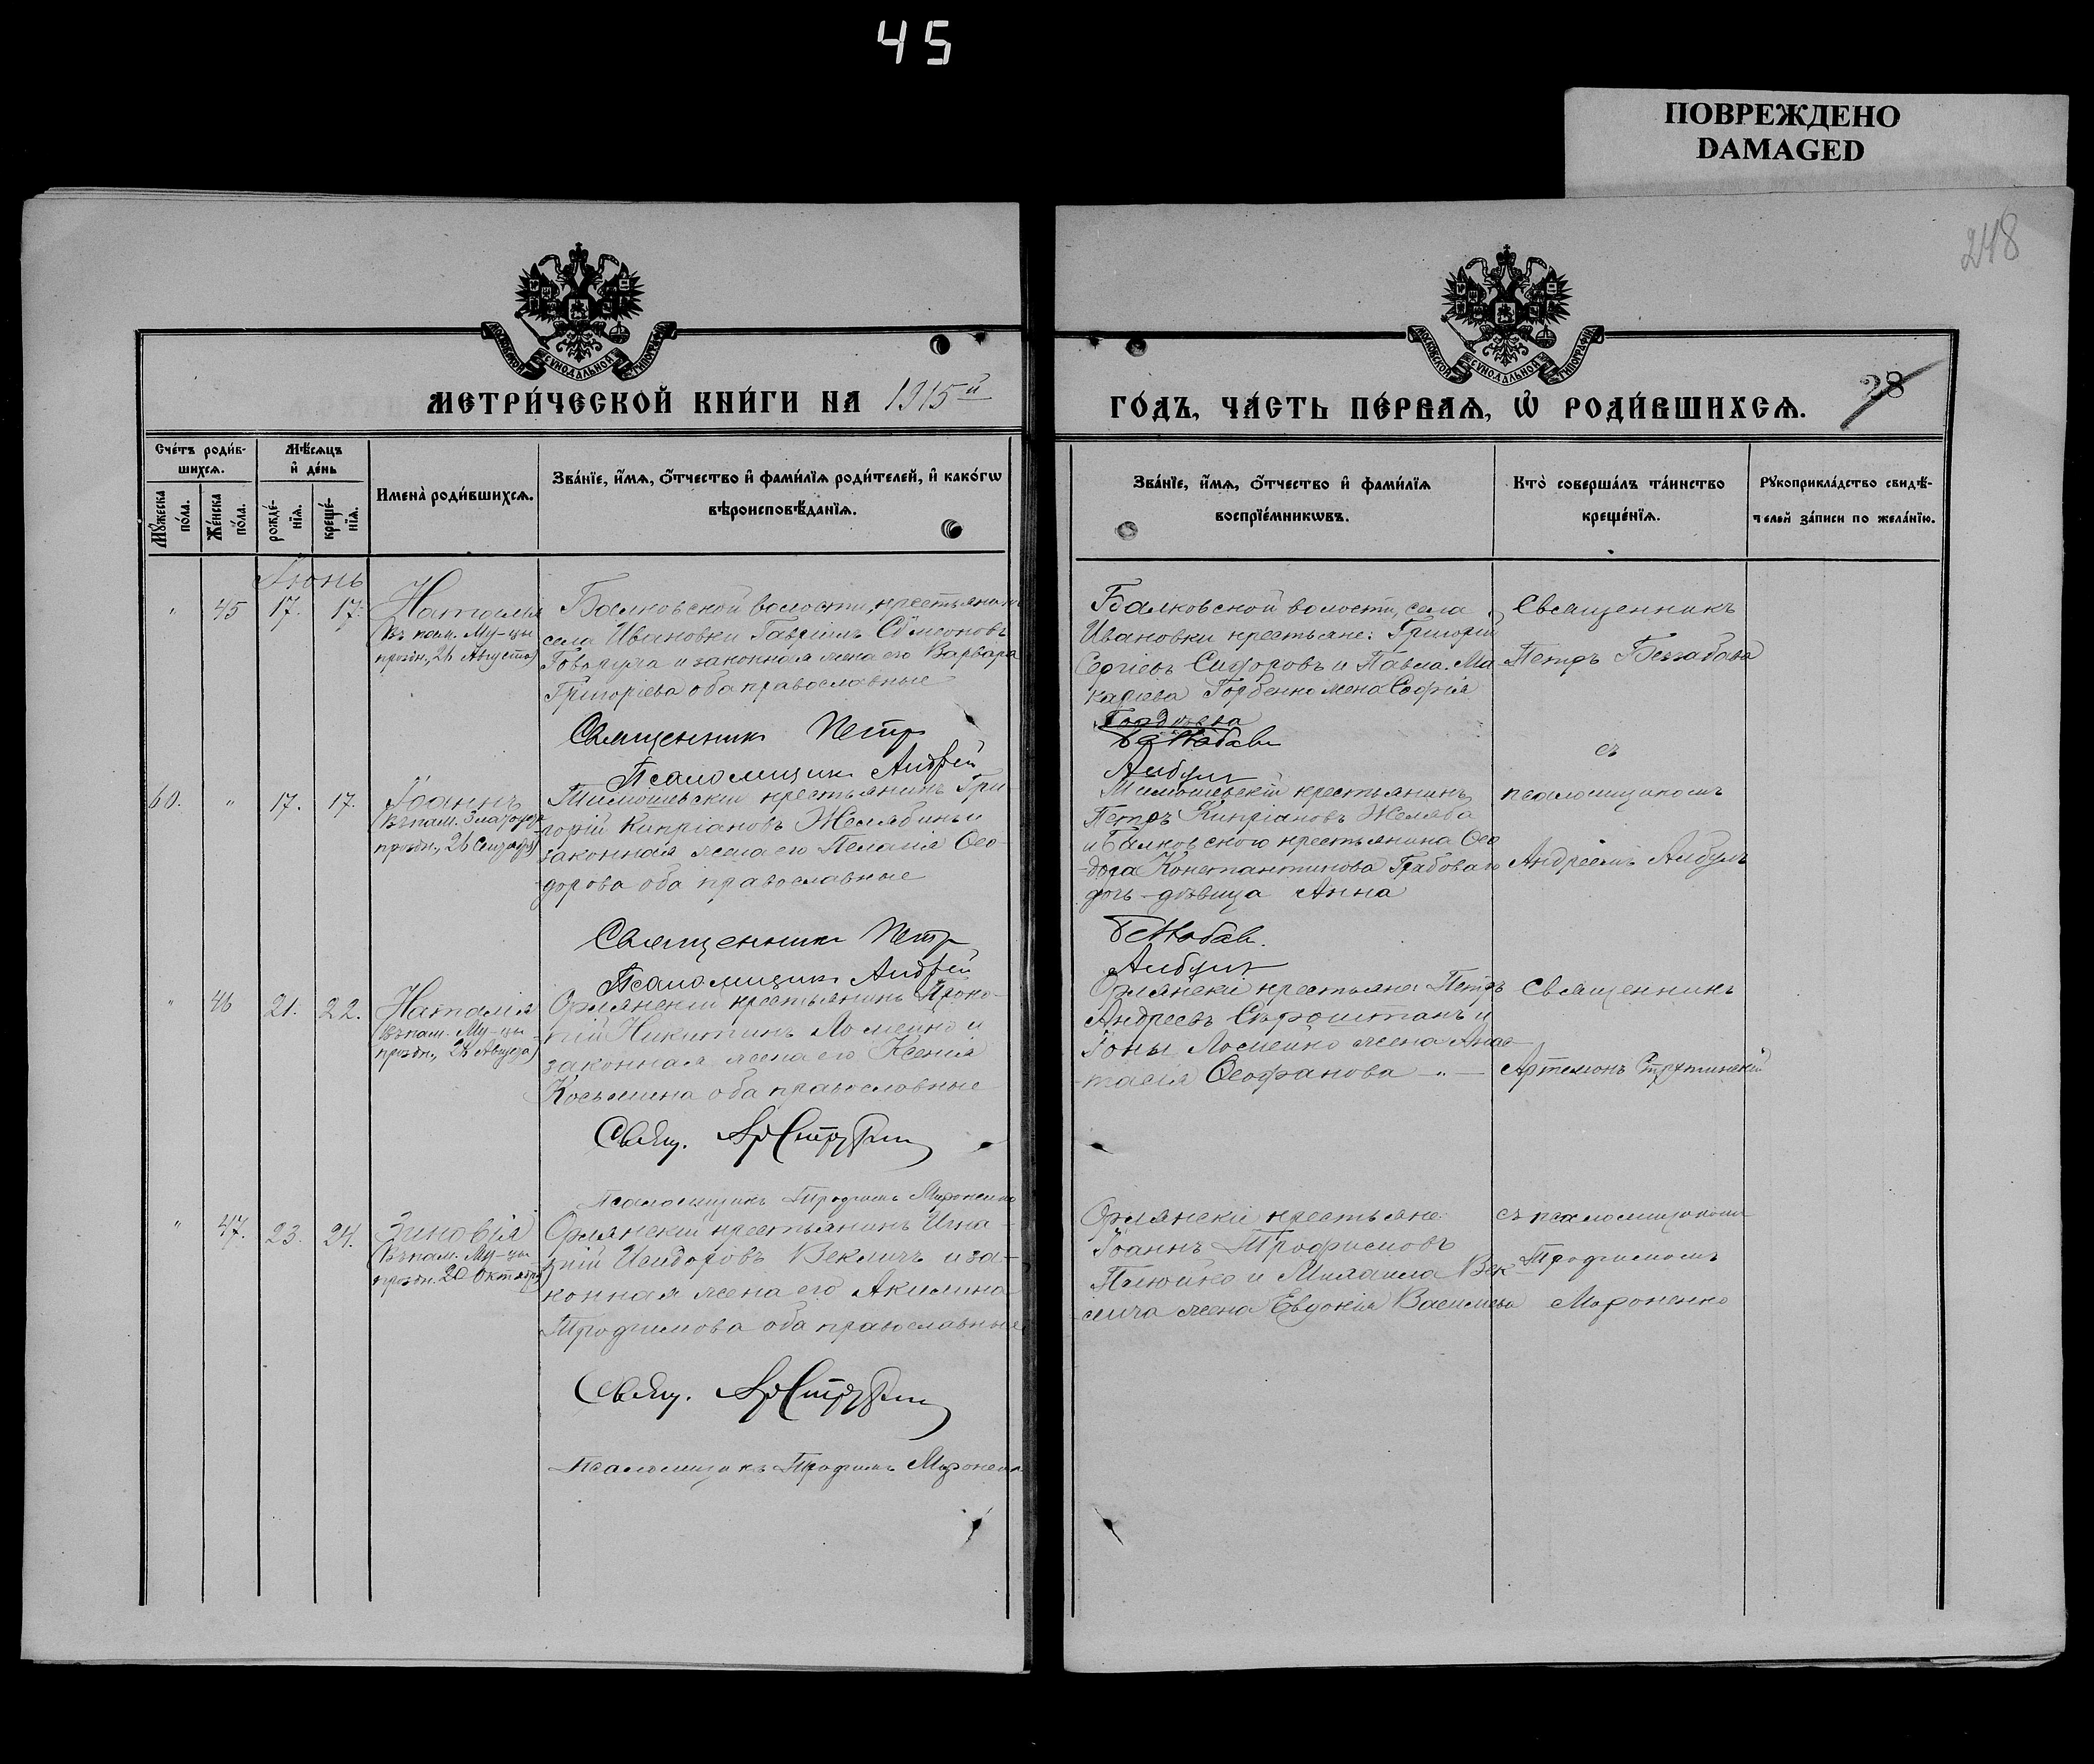 45
ПОВРЕЖДЕНО
DAMAGED
248
МОСКОВСКОЙ СѴНОДАЛЬНОЙ ТИПОГРАФІИ
МОСКОВСКОЙ СѴНОДАЛЬНОЙ ТИПОГРАФІИ
28
МЕТРИ́ЧЕСКОЙ КНИ́ГИ НА 1915й
ГО́ДЪ, ЧА́СТЬ ПЕ́РВАѦ, Ѡ҆ РОДИ́ВШИХСѦ.
Сче́тъ роди́в-
шихсѧ.
Мѣ́сѧцъ
и҆ де́нь
Мꙋ́жеска
по́ла.
Же́нска
по́ла.
рожде́-
нїѧ.
креще́-
нїѧ.
Имена̀ роди́вшихсѧ.
Зва́нїе, и҆́мѧ, ѻ҆́тчество и҆ фами́лїѧ роди́телей, и҆ како́гѡ
вѣроисповѣ́данїѧ.
Зва́нїе, и҆́мѧ, ѻ҆́тчество и҆ фами́лїѧ
воспрїе́мникѡвъ.
Кто̀ соверша́лъ та́инство
креще́нїѧ.
Рꙋкоприкла́дство свидѣ́-
телей за́писи по жела́нїю.
Іюнь
" 45 17. 17.
Наталія
(Въ пам. Му-цы
праздн. 26 Августа)
Балковской волости, крестьянинъ
села Ивановки Гавріилъ Сѵмеоновъ
и законная жена его Варвара
Григоріева оба православные
Священникъ Петръ
Псаломщикъ Андрей
Балковской волости, села
Ивановки крестьяне: Григорій
Сергіевъ Сидоровъ и Павла Ма-
каріева Горбенко жена Софія
Священникъ
Петръ Беззабава
60. " 17. 17.
Іоаннъ
(Въ пам. Златоуста
праздн. 26 Сентября)
Тимошевскій крестьянинъ Гри-
горій Кипріановъ и
законная жена его Пелагія Ѳео-
дорова оба православные
Священникъ Петръ
Псаломщикъ Андрей
Тимошевскій крестьянинъ
Петръ Кипріановъ Желяба
и Балковского крестьянина Ѳео-
дора Константинова Грабоваго
дочь-дѣвица Анна
съ
псаломщикомъ
Андреемъ
" 46 21. 22.
Наталія
(Въ пам. Му-цы
праздн. 26 Августа)
Орлянскій крестьянинъ Проко-
пій Никитинъ Ломейко и
законная жена его Ксенія
Косьмина оба православные
Свящ.
Псаломщикъ Трофимъ Мироненко
Орлянскіе крестьяне: Петръ
Андреевъ Сыроштанъ и
Іоны Ломейко жена Анас-
тасія Ѳеофанова "—
Священникъ
Артемонъ
" 47. 23. 24.
Зиновія
(Въ пам. Му-цы
праздн. 20 Октября)
Орлянскій крестьянинъ Игна-
тій Исидоровъ Векличъ и за-
конная жена его Акилина
Трофимова оба православные
Свящ.
Псаломщикъ Трофимъ Мироненко
Орлянскіе крестьяне:
Іоаннъ Трофимовъ
и Михаила Век-
лича жена Евдокія Васильева
съ псаломщикомъ
Трофимомъ
Мироненко